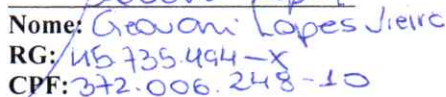 Nome: Geovani Lopes Vieira
RG: 45.735.494-X
CPF: 372.006.248-10